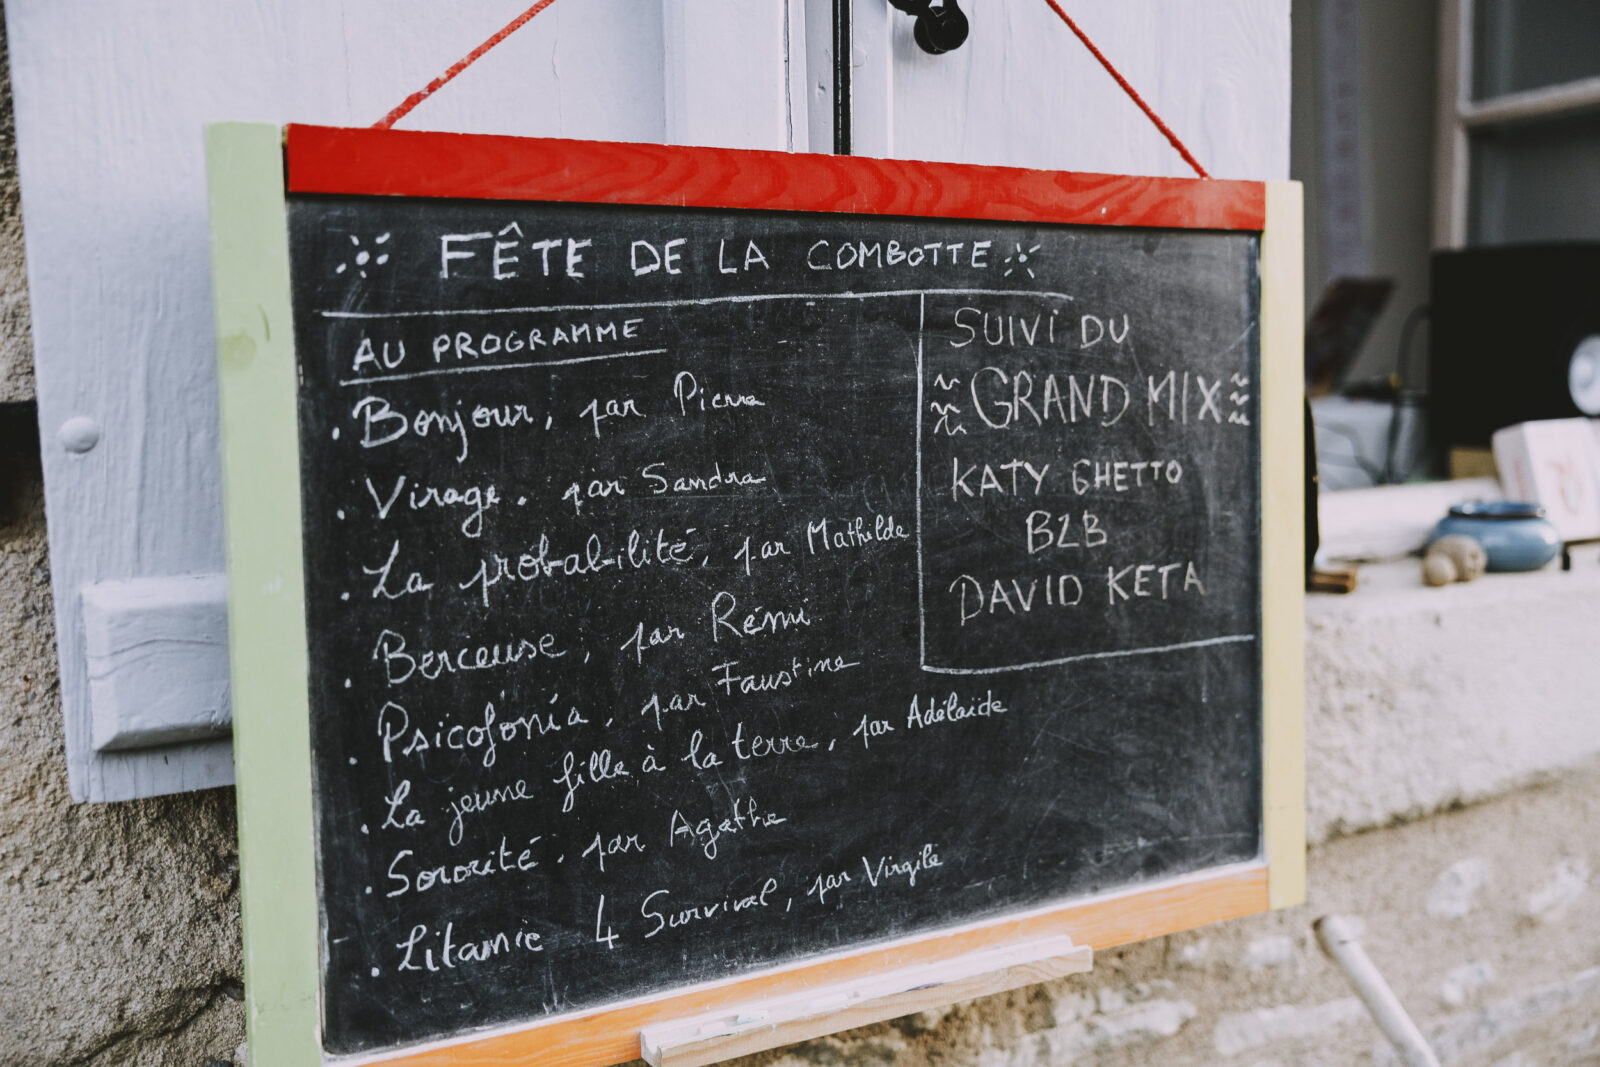 FÊTE DE LA COMBOTTE
AU PROGRAMME
. Bonjour, par Pierre
. Virage, par Sandra
. La probabilité, par Mathilde
. Berceuse, par Rémi
. Psicofonía, par Faustine
. La jeune fille à la terre, par Adélaïde
. Sororité, par Agathe
. Litamie 4 Survival, par Virgile
SUIVI DU
GRAND MIX
KATY GHETTO
B2B
DAVID KETA